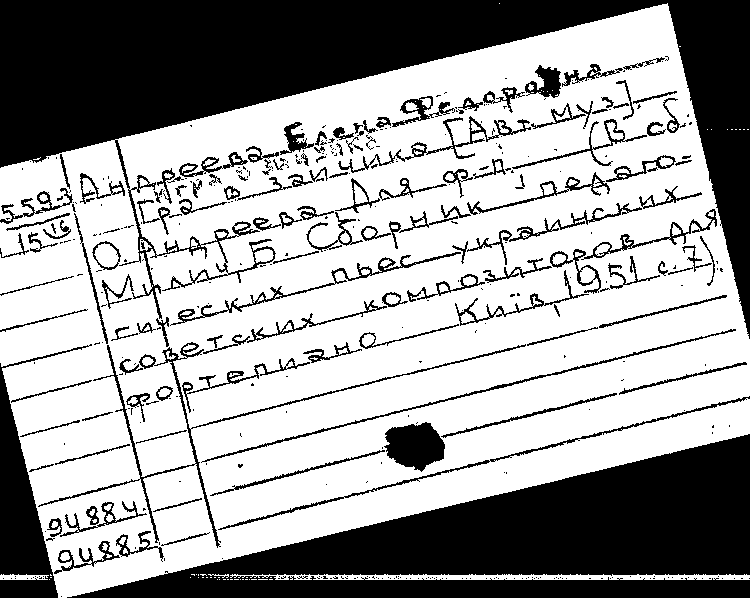 Андреева Елена Федоровна
Игра в зайчика
5593 Гра в зайчика [Авт. муз].
15 VІб О. Андреева. Для ф-п. (В сб.
Милич, Б. Сборник педаго=
гических пьес украинских
советских композиторов для
фортепиано Київ, 1951 с. 7).
94884
94885